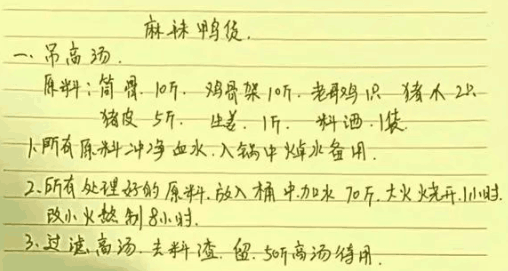 麻辣鸭货.
一、吊高汤.
原料：筒骨.10斤. 鸡骨架10斤. 老母鸡1只 猪爪2只
猪皮 5斤. 生姜. 1斤. 料酒.1袋.
1.所有原料冲净血水.入锅中焯水备用.
2.所有处理好的原料.放入桶中.加水70斤.大火烧开.1小时.
改小火熬制8小时.
3.过滤高汤.去料渣.留.50斤高汤待用.